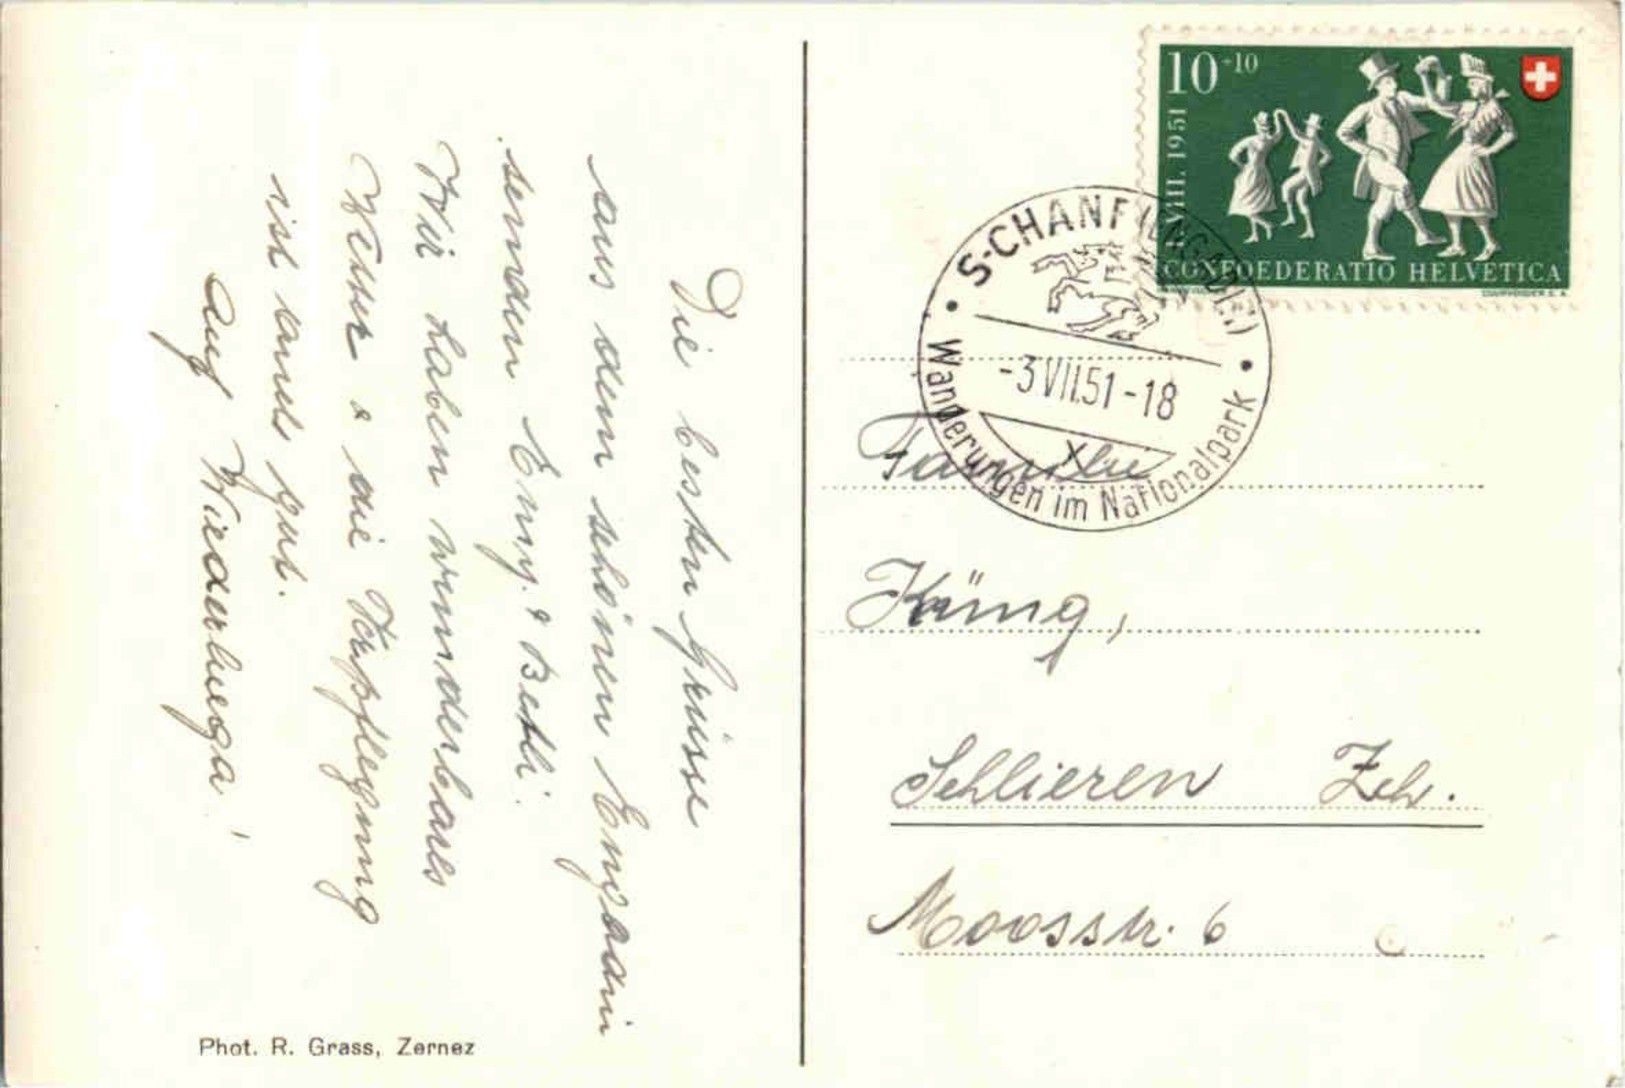 Die besten Grüsse
aus dem schönen Engadin
senden Emy. & Betli.
Wir haben wunderbares
Wetter & die Verpflegung
ist auch gut.
Auf Wiederluega!
Phot. R. Grass, Zernez
10+10
VIII. 1951
CONFOEDERATIO HELVETICA
COURVOISIER S.A.
S-CHANF (ENGADIN)
-3.VII.51-18
Wanderungen im Nationalpark
Familie
Küng,
Schlieren Zch.
Moosstr. 6